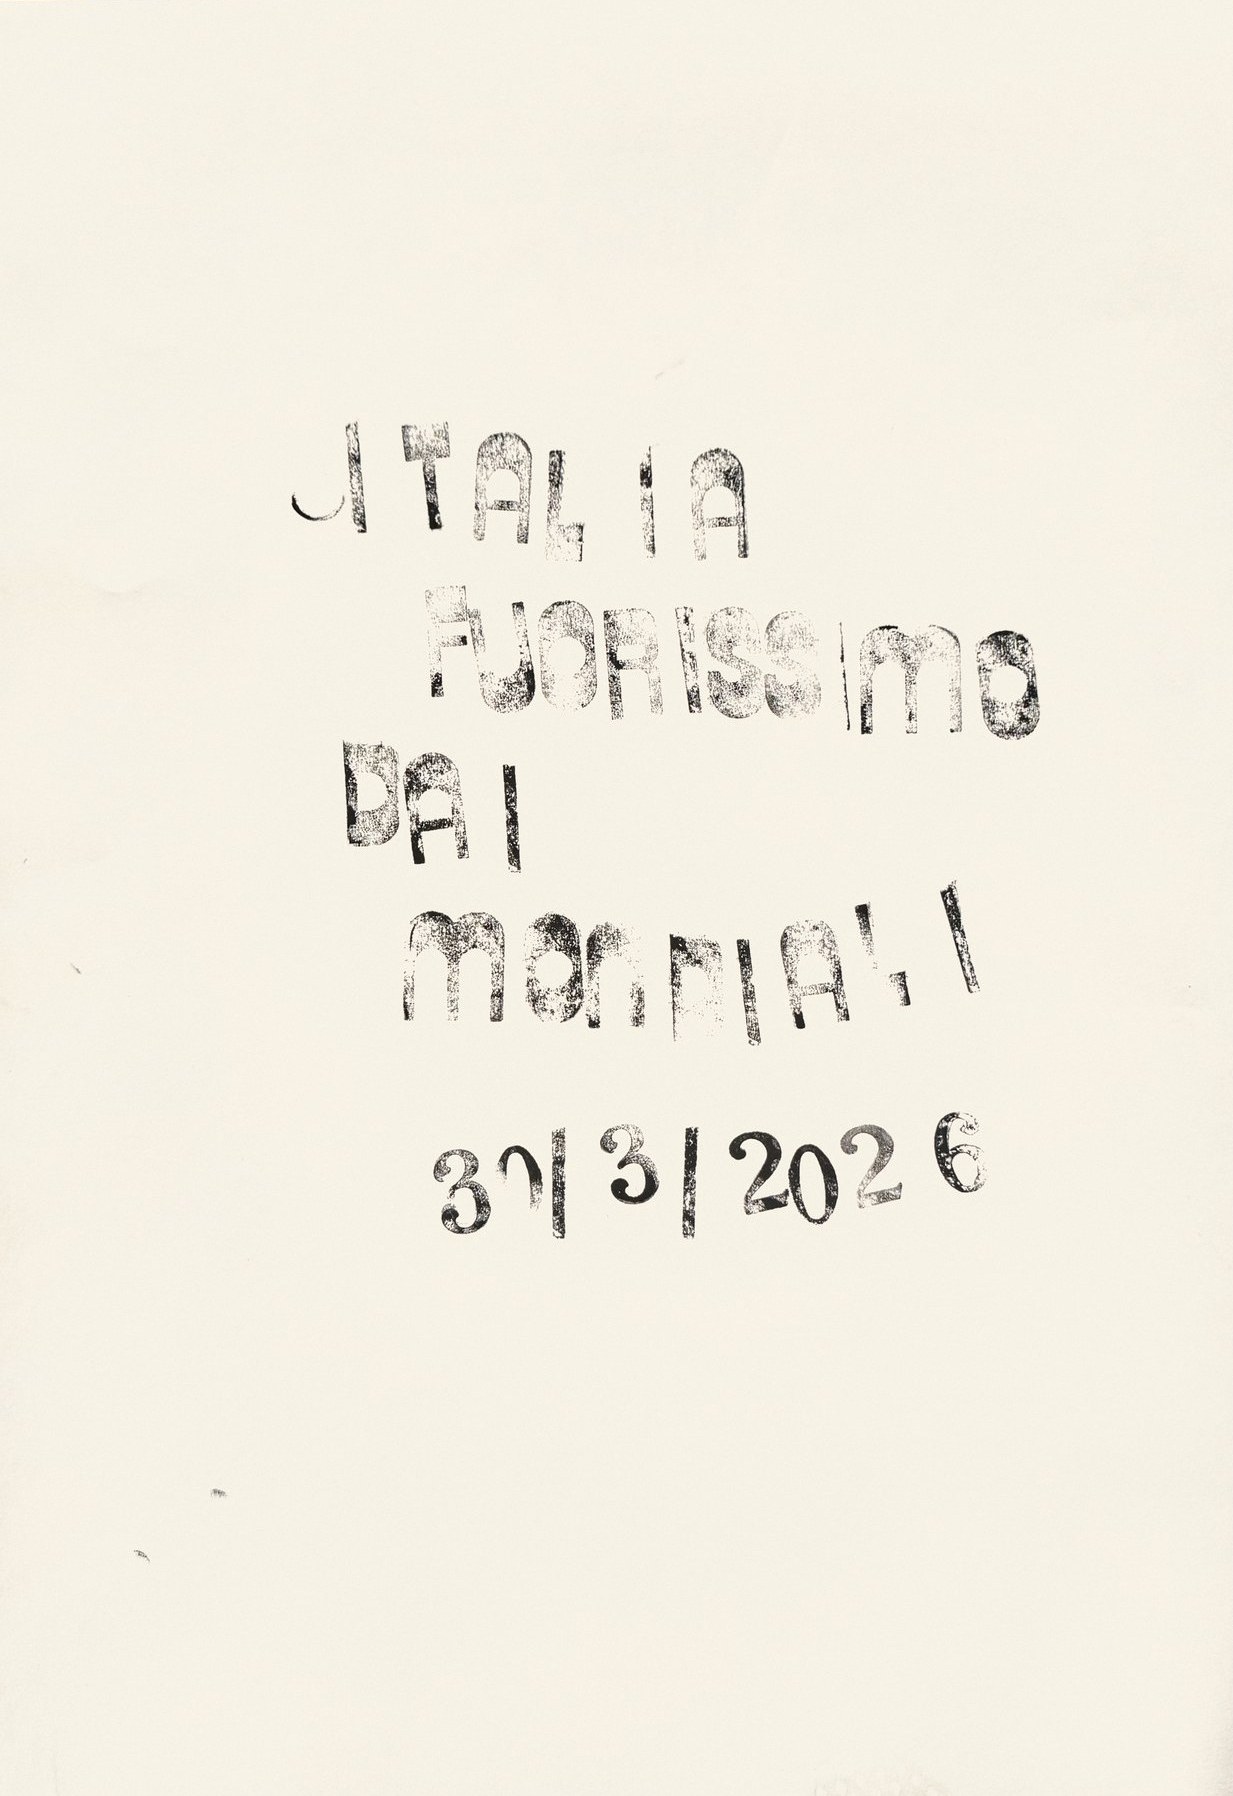 ITALIA
FUORISSIMO
DAI
MONDIALI
30|3|2026